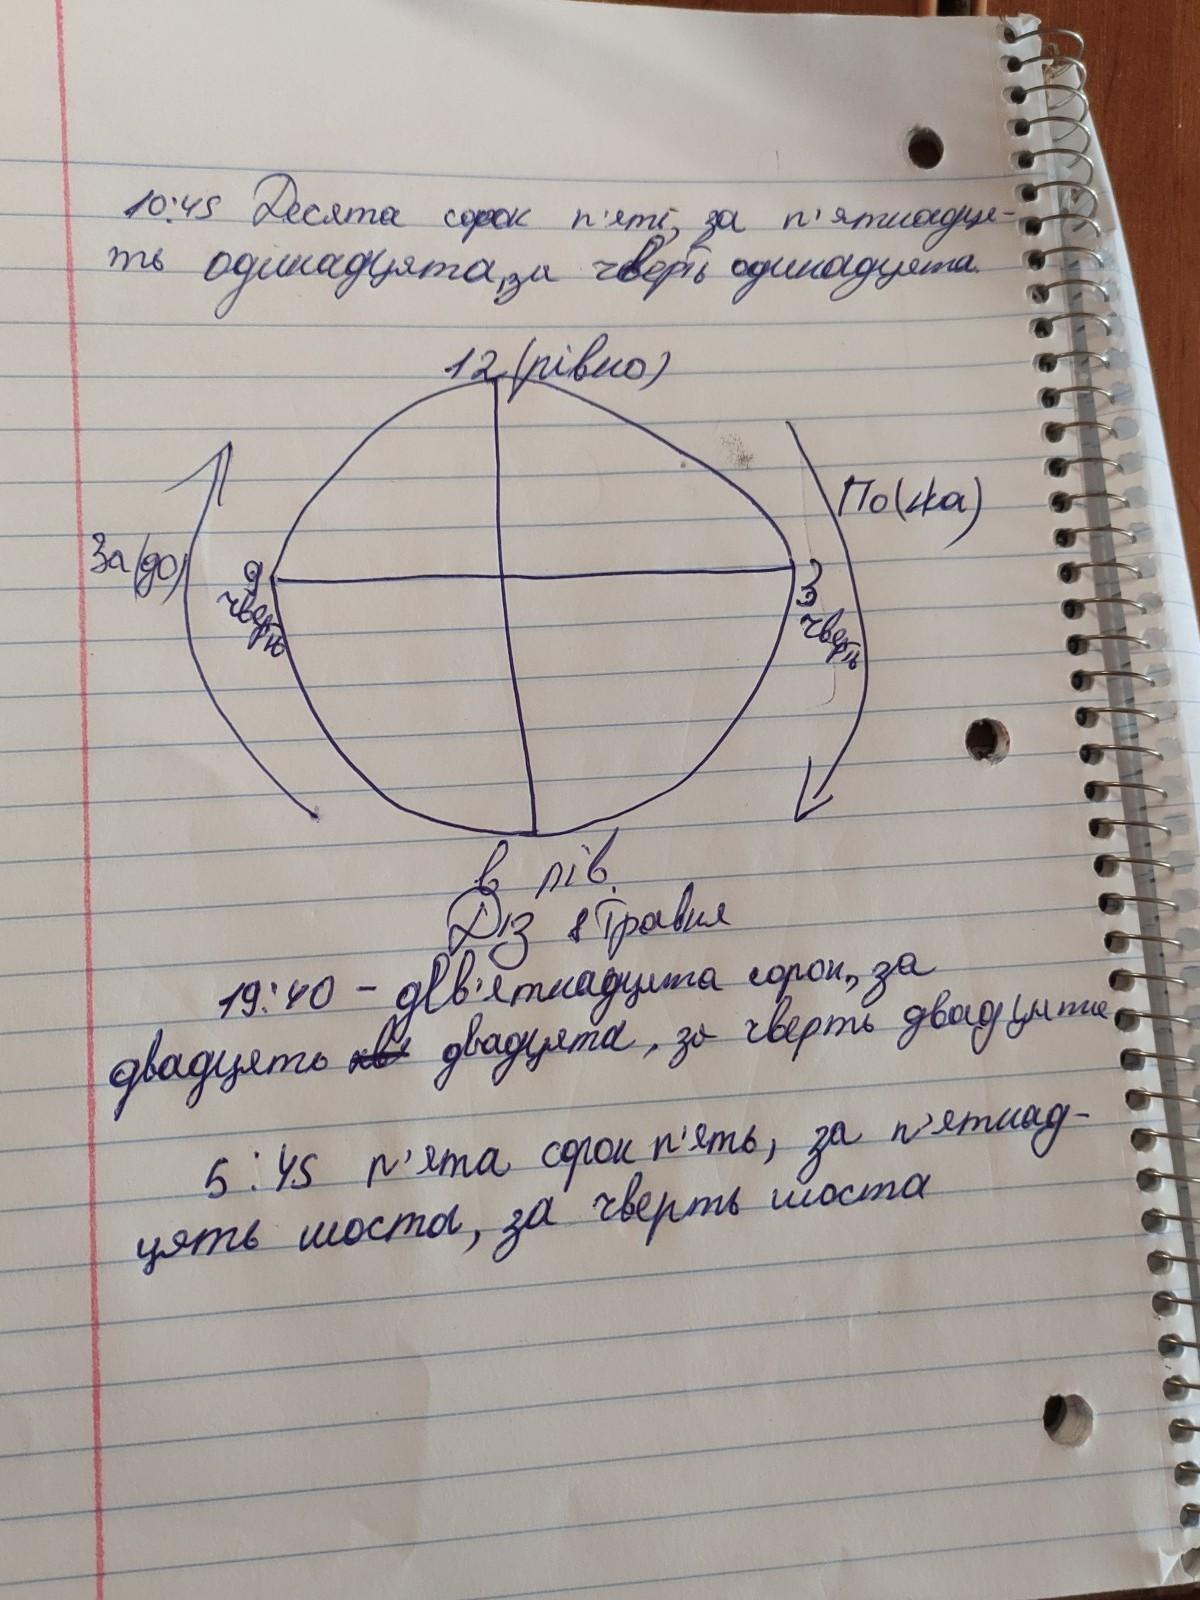 10:45 Десята сорок п'яті, за п'ятнадця-
ть одинадцята, за чверть одинадцята.
12 (рівно)
За (до)
По (на)
9
чверть
3
чверть
в пів.
ДЗ 8 Травня
19:40 - дев'ятнадцята сорок, за
двадцять двадцята, за чверть двадцята
5:45 п'ята сорок п'ять, за п'ятнад-
цять шоста, за чверть шоста